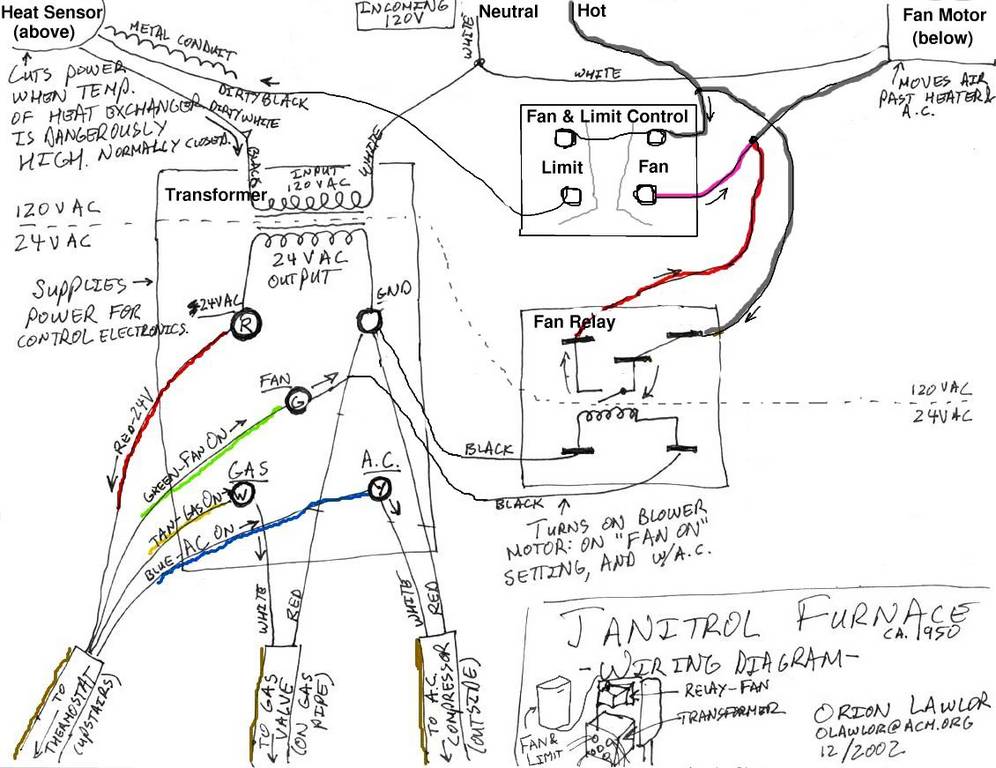 Heat Sensor
(above)
INCOMING
120V
Neutral
Hot
Fan Motor
(below)
METAL CONDUIT
WHITE
WHITE
CUTS POWER
WHEN TEMP.
OF HEAT EXCHANGER
IS DANGEROUSLY
HIGH. NORMALLY CLOSED.
DIRTY BLACK
DIRTY WHITE
MOVES AIR
PAST HEATER &
A.C.
Fan & Limit Control
Limit
Fan
BLACK
WHITE
INPUT
120VAC
Transformer
120VAC
24VAC
24VAC
OUTPUT
SUPPLIES
POWER FOR
CONTROL ELECTRONICS.
24VAC
R
GND
Fan Relay
FAN
G
120VAC
24VAC
RED-24V
GREEN-FAN ON
BLACK
BLACK
GAS
W
A.C.
Y
TAN-GAS ON
BLUE-AC ON
TURNS ON BLOWER
MOTOR: ON "FAN ON"
SETTING, AND W/A.C.
WHITE
RED
WHITE
RED
TO
THERMOSTAT
(UPSTAIRS)
TO GAS
VALVE
(ON GAS
PIPE)
TO A.C.
COMPRESSOR
(OUTSIDE)
JANITROL FURNACE
CA. 1950
-WIRING DIAGRAM-
RELAY-FAN
TRANSFORMER
FAN &
LIMIT
ORION LAWLOR
OLAWLOR@ACM.ORG
12/2002